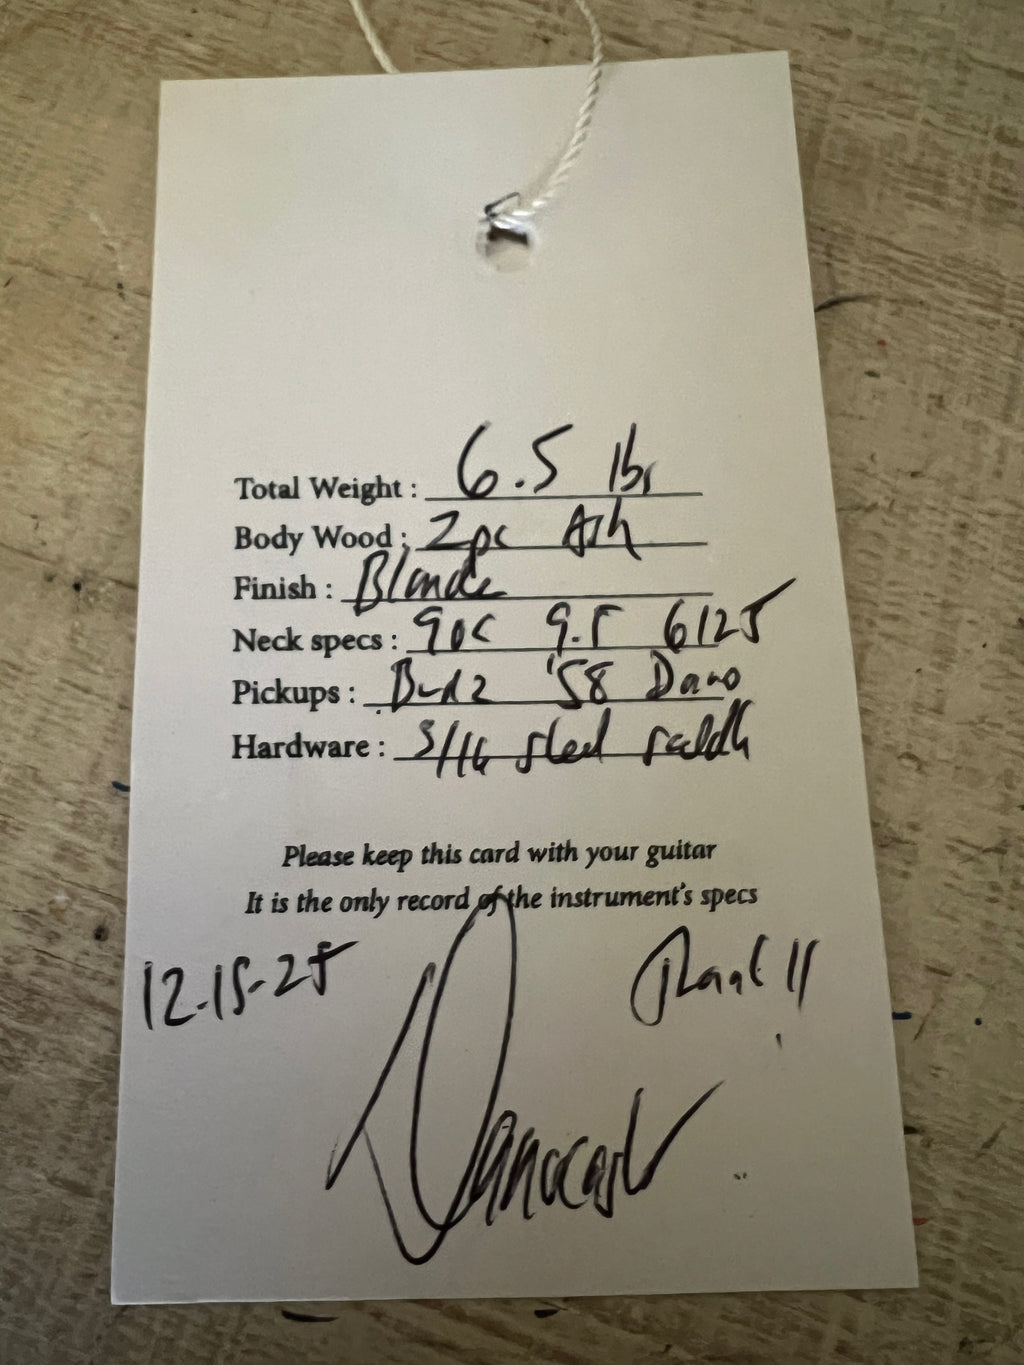 Total Weight : 6.5 lbs
Body Wood : 2pc Ash
Finish : Blonde
Neck specs : 9.5 6125
Pickups : '58 Dano
Hardware : 5/16 steel saddle
Please keep this card with your guitar
It is the only record of the instrument's specs
12-15-25
Danocaster